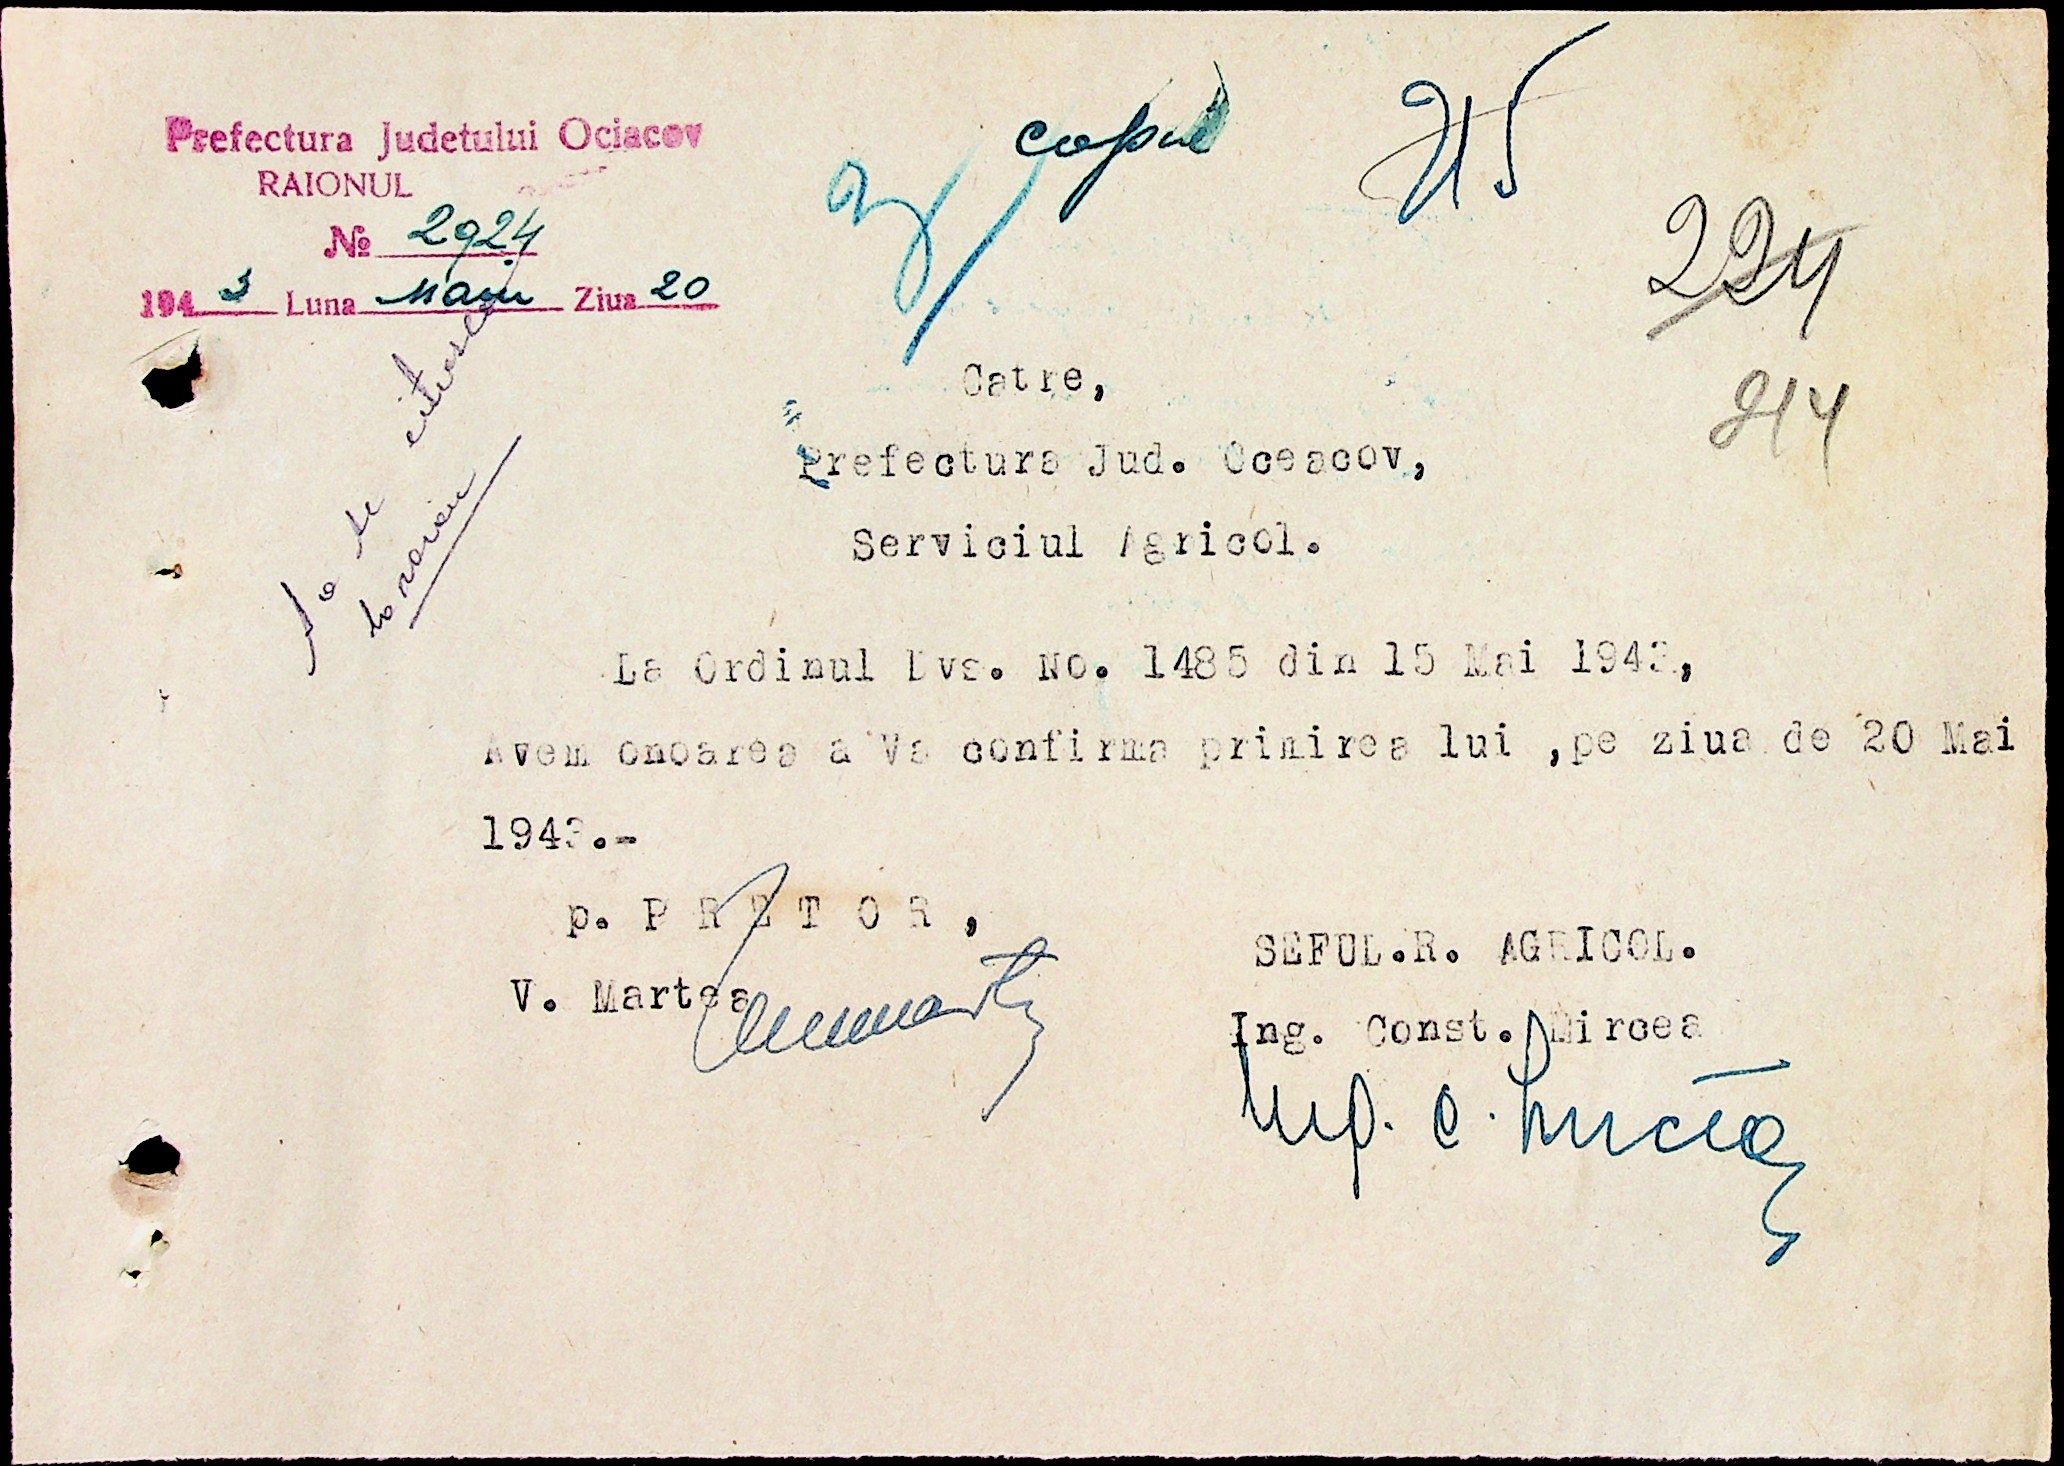 Prefectura Judetului Ociacov
RAIONUL
№ 2924
1943 Luna Maiu Ziua 20
copie
215
224
214
Catre,
Prefectura Jud. Oceacov,
Serviciul Agricol.
La Ordinul Dvs. No. 1485 din 15 Mai 1943,
Avem onoarea a Va confirma primirea lui ,pe ziua de 20 Mai
1943.-
p. P R E T O R ,
V. Martea
SEFUL.R. AGRICOL.
Ing. Const. Mircea